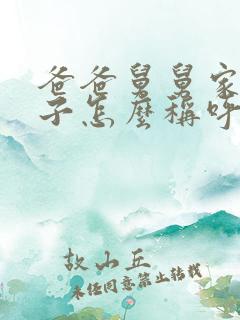 爸爸舅舅家
子怎麼稱呼
故山丘
未经同意禁止转载